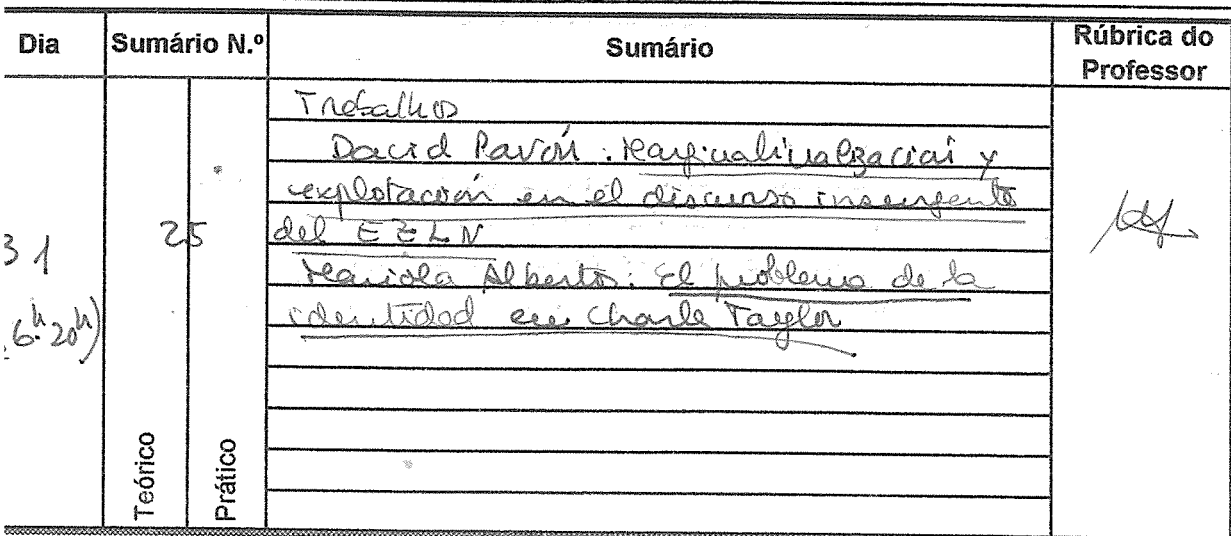 Dia
Sumário N.º
Sumário
Rúbrica do
Professor
31
6h 20h)
25
Teórico
Prático
Trabalhos
David Pavón: Marginalización y
explotación en el discurso insurgente
del EZLN
Mariola Alberto: El problema de la
identidad en Charle Taylor